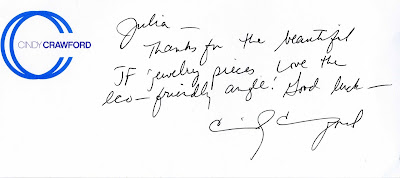 CINDYCRAWFORD
Julia —
Thanks for the beautiful
JF jewelry pieces. Love the
eco-friendly angle! Good luck —
Cindy Crawford